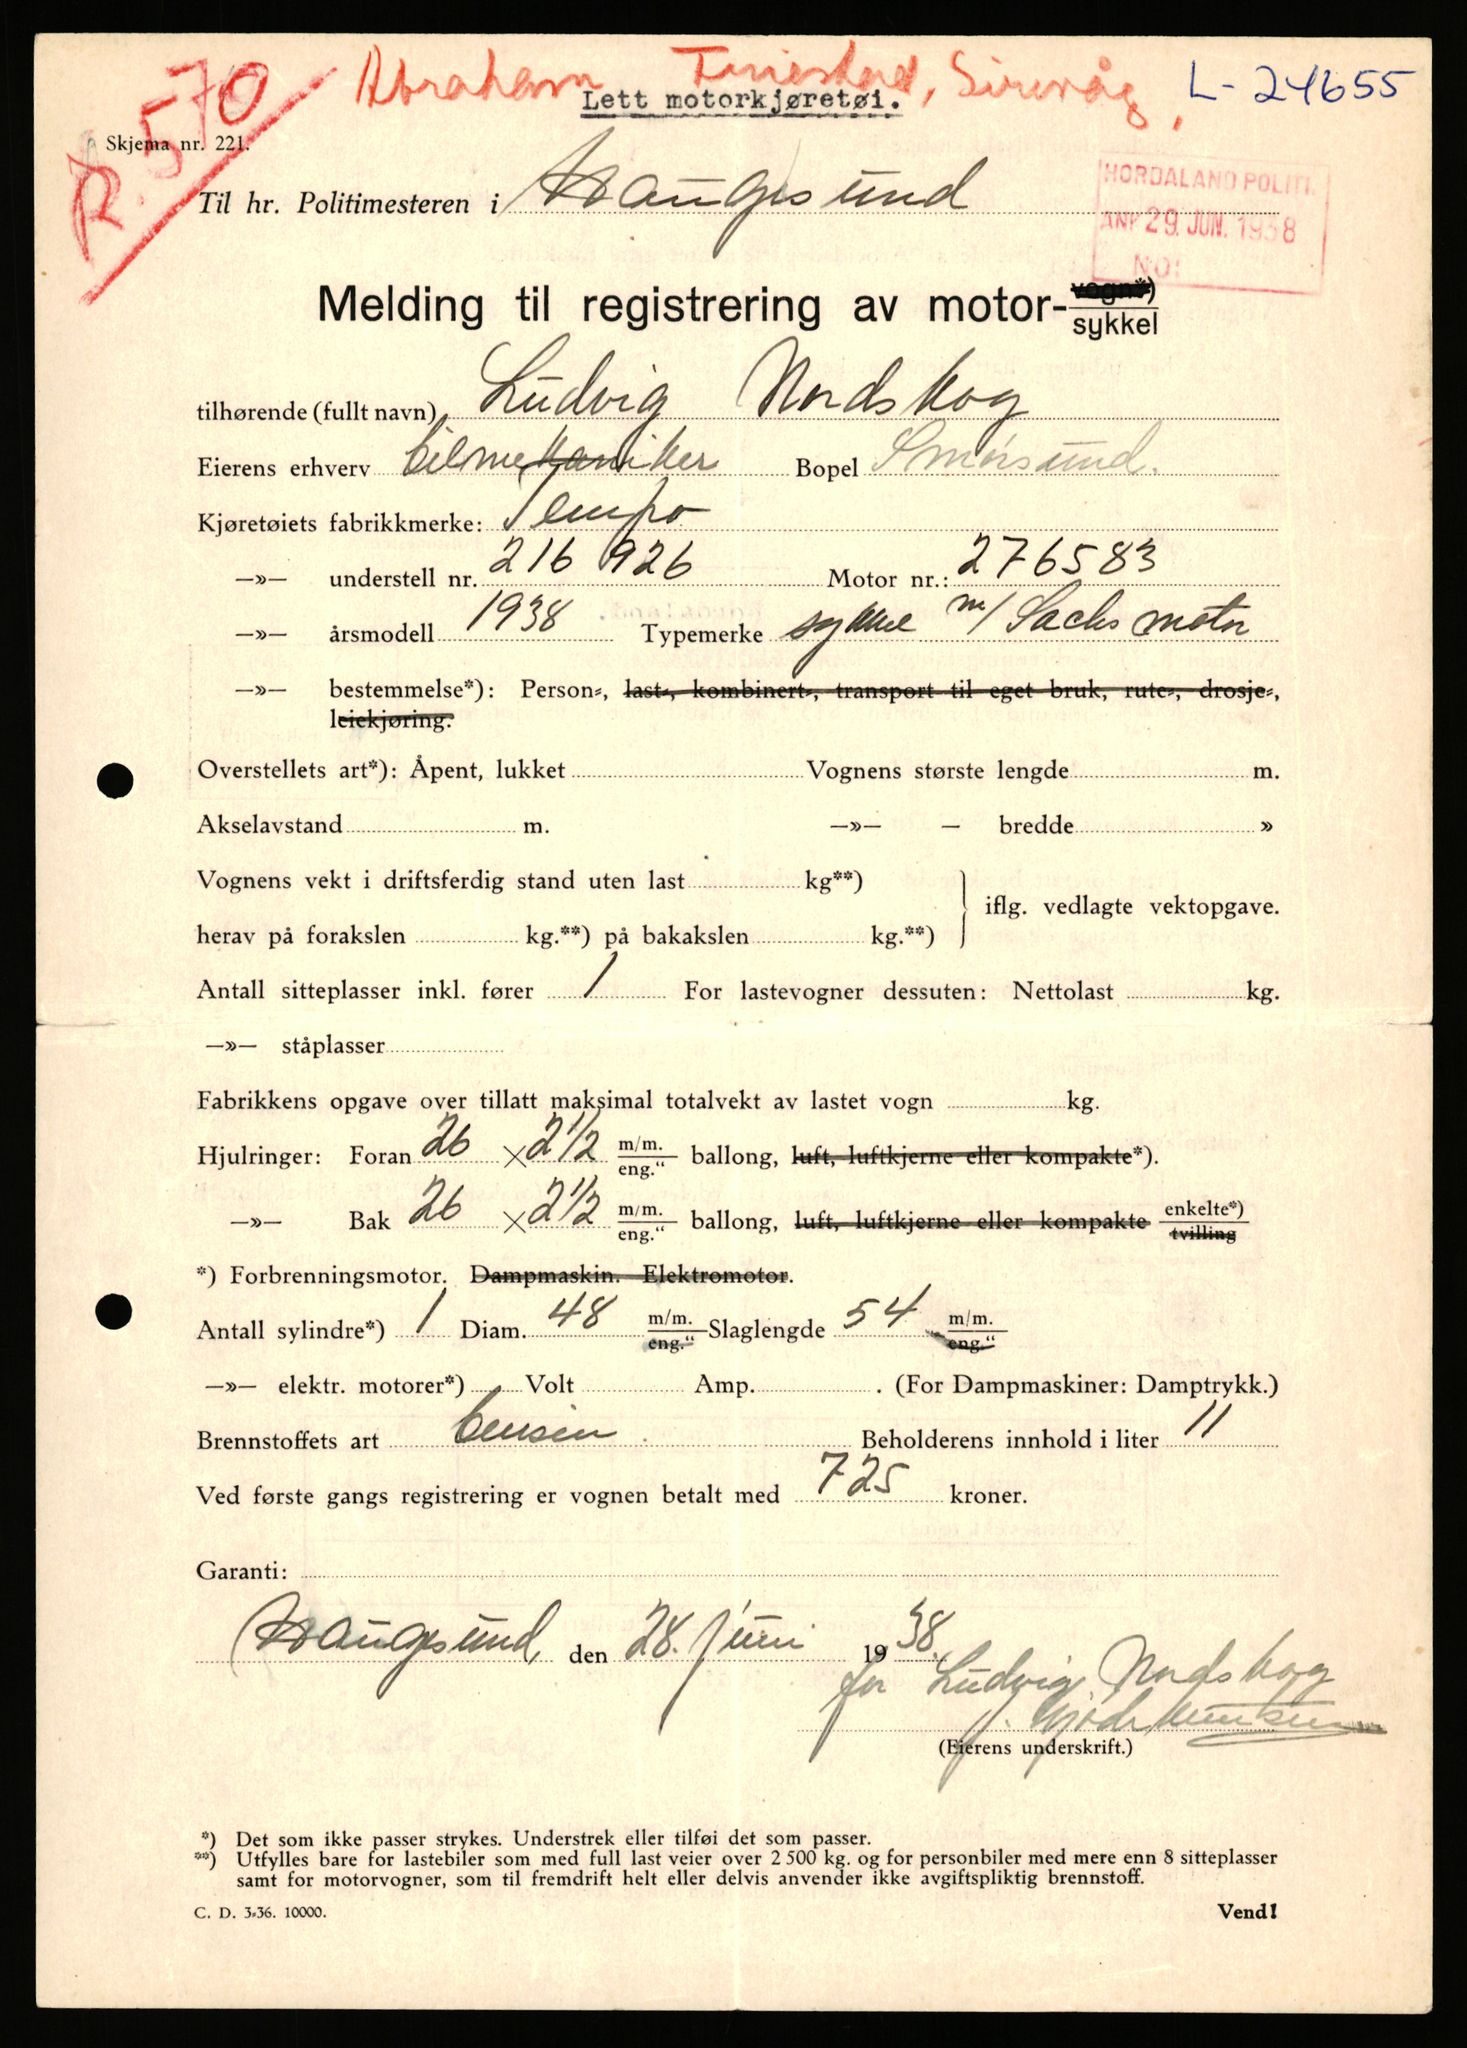 R. 570
Abraham Tunestved, Sirevåg, L-24655
Lett motorkjøretøi.
Skjema nr. 221.
HORDALAND POLITI.
ANK 29. JUN. 1938
NO:
Til hr. Politimesteren i Haugesund
Melding til registrering av motor-vogn*) sykkel
tilhørende (fullt navn) Ludvig Nordskog
Eierens erhverv bilmekaniker Bopel Smørsund.
Kjøretøiets fabrikkmerke: Tempo
—»— understell nr. 216 926 Motor nr.: 276583
—»— årsmodell 1938 Typemerke sykkel m/ Sachs motor
—»— bestemmelse*): Person-, last-, kombinert-, transport til eget bruk, rute-, drosje-,
leiekjøring.
Overstellets art*): Åpent, lukket Vognens største lengde m.
Akselavstand m. —»— — bredde »
Vognens vekt i driftsferdig stand uten last kg**)
iflg. vedlagte vektopgave.
herav på forakslen kg.**) på bakakslen kg.**)
Antall sitteplasser inkl. fører 1 For lastevogner dessuten: Nettolast kg.
—»— ståplasser
Fabrikkens opgave over tillatt maksimal totalvekt av lastet vogn kg.
Hjulringer: Foran 26 × 2 1/2 m/m. eng." ballong, luft, luftkjerne eller kompakte*).
—»— Bak 26 × 2 1/2 m/m. eng." ballong, luft, luftkjerne eller kompakte enkelte*) tvilling
*) Forbrenningsmotor. Dampmaskin. Elektromotor.
Antall sylindre*) 1 Diam. 48 m/m. eng." Slaglengde 54 m/m. eng."
—»— elektr. motorer*) Volt Amp. . (For Dampmaskiner: Damptrykk.)
Brennstoffets art bensin Beholderens innhold i liter 11
Ved første gangs registrering er vognen betalt med 725 kroner.
Garanti:
Haugesund, den 28. juni 1938.
for Ludvig Nordskog
(Eierens underskrift.)
*) Det som ikke passer strykes. Understrek eller tilføi det som passer.
**) Utfylles bare for lastebiler som med full last veier over 2 500 kg. og for personbiler med mere enn 8 sitteplasser
samt for motorvogner, som til fremdrift helt eller delvis anvender ikke avgiftspliktig brennstoff.
C. D. 3-36. 10000. Vend!